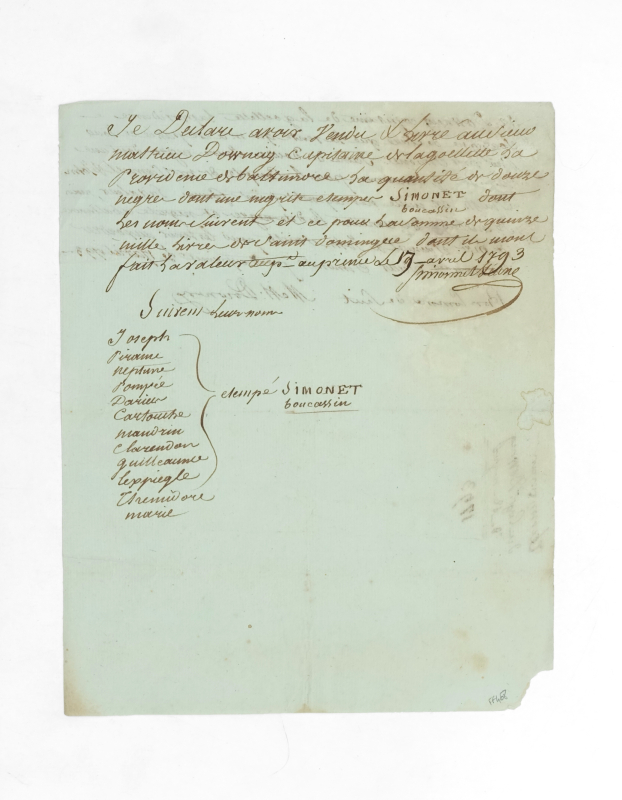 Je Declare avoir Vendu & livre au sieur
mathieu Downay Capitaine de la goellette La
Providence de baltimore La quantité de douze
negre dont une négrite etempés SIMONET dont
boucassin
Les noms suivent et ce pour La somme de quinze
mille livre de Saint domingue dont il m'ont
fait La valeur au p.t au prince Le 19 avril 1793
Suivent Leurs nom
Joseph
Pirame
neptune
Pompée
Darius
Cartouche
mandrin
Clarendon
guilleaume
Lexpiegle
Themidore
marie
etempé SIMONET
boucassin